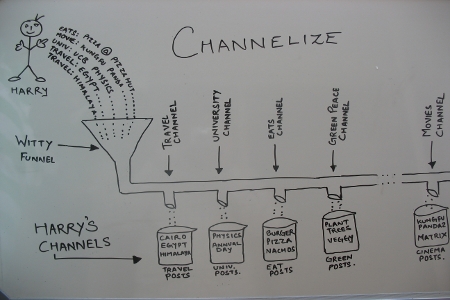 CHANNELIZE
EATS: PIZZA @ PIZZA HUT
MOVIE: KUNGFU PANDA
UNIV: UCB PHYSICS
TRAVEL: EGYPT
TRAVEL: HIMALAYA
HARRY
WITTY
FUNNEL
TRAVEL
CHANNEL
UNIVERSITY
CHANNEL
EATS
CHANNEL
GREEN PEACE
CHANNEL
MOVIES
CHANNEL
HARRY'S
CHANNELS
CAIRO
EGYPT
HIMALAYA
TRAVEL
POSTS
PHYSICS
ANNUAL
DAY
UNIV.
POSTS.
BURGER
PIZZA
NACHOS
EAT
POSTS
PLANT
TREES
VEGGY
GREEN
POSTS.
KUNGFU
PANDA2
MATRIX
CINEMA
POSTS.